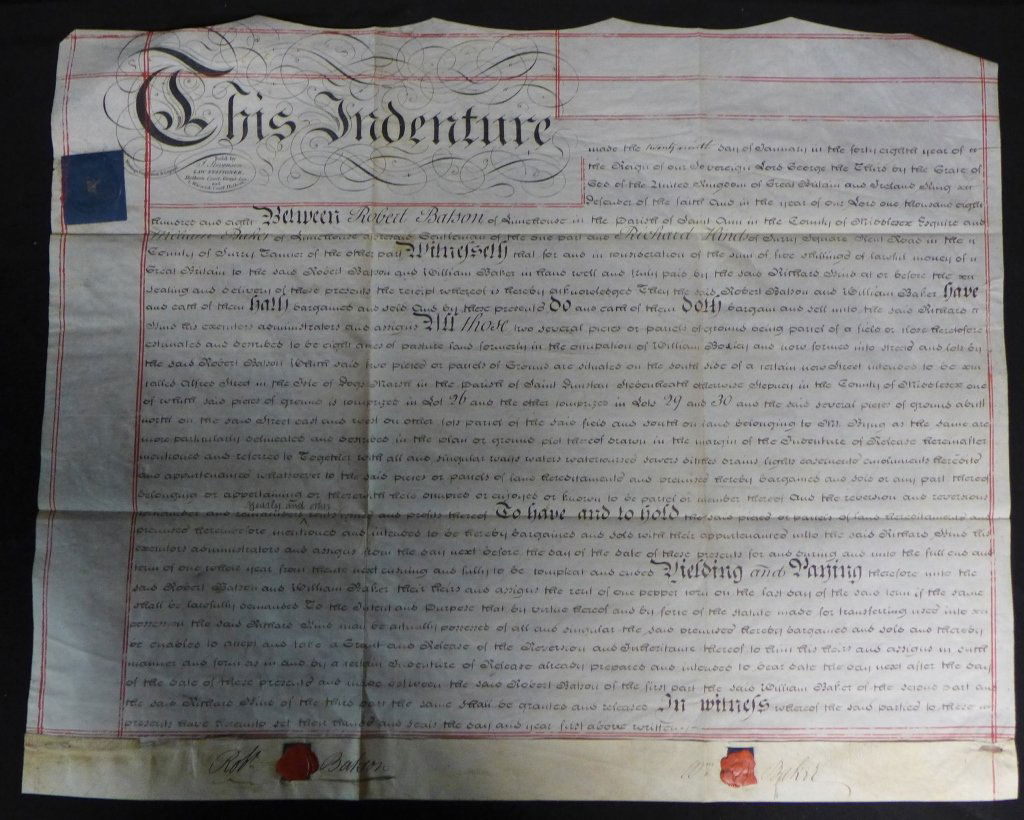 This Indenture
Sold by
LAW STATIONER
made the twenty ninth day of January in the forty eighth year of
the Reign of our Sovereign Lord George the Third by the Grace of
God of the United Kingdom of Great Britain and Ireland King
Defender of the faith And in the year of our Lord one thousand eight
hundred and eight Between Robert Batson of Limehouse in the Parish of Saint Ann in the County of Middlesex Esquire and
William Baker of Limehouse aforesaid Gentleman of the one part and Richard of Surry Square Kent Road in the
County of Surry Tanner of the other part Witnesseth that for and in consideration of the sum of five shillings of lawful money of
Great Britain to the said Robert Batson and William Baker in hand well and truly paid by the said Richard at or before the
sealing and delivery of these presents the receipt whereof is hereby acknowledged They the said Robert Batson and William Baker have
and each of them hath bargained and sold And by these presents do and each of them doth bargain and sell unto the said Richard
his executors administrators and assigns All those two several pieces or parcels of ground being parcel of a field or close heretofore
estimated and described to be eight acres of pasture land formerly in the occupation of William and now formed into streets and lots by
the said Robert Batson Which said two pieces or parcels of Ground are situated on the south side of a certain new Street intended to be
called Alfred Street in the Isle of Dogs Marsh in the parish of Saint Dunstan Stebonheath otherwise Stepney in the County of Middlesex one
of which said pieces of ground is comprized in Lot 26 and the other comprized in Lots 29 and 30 and the said several pieces of ground abutt
north on the said Street east and west on other lots parcel of the said field and south on land belonging to Mr. Byng as the same are
more particularly delineated and described in the plan or ground plot thereof drawn in the margin of the Indenture of Release hereinafter
mentioned and referred to Together with all and singular ways waters watercourses sewers ditches drains lights easements emoluments heredits
and appurtenances whatsoever to the said pieces or parcels of land hereditaments and premises hereby bargained and sold or any part thereof
belonging or appertaining or therewith there occupied or enjoyed or known to be parcel or member thereof And the reversion and reversions
yearly and other
remainder and remainders rents issues and profits thereof To have and to hold the said pieces or parcels of land hereditaments and
premises hereinbefore mentioned and intended to be hereby bargained and sold with their appurtenances unto the said Richard his
executors administrators and assigns from the day next before the day of the date of these presents for and during and unto the full end and
term of one whole year from thence next ensuing and fully to be compleat and ended Yielding and Paying therefore unto the
said Robert Batson and William Baker their heirs and assigns the rent of one pepper corn on the last day of the said term if the same
shall be lawfully demanded To the Intent and Purpose that by virtue hereof and by force of the statute made for transferring uses into
possession the said Richard may be actually possessed of all and singular the said premises hereby bargained and sold and thereby
be enabled to accept and take a Grant and Release of the Reversion and Inheritance thereof to him his heirs and assigns in such
manner and form as in and by a certain Indenture of Release already prepared and intended to bear date the day next after the day
of the date of these presents and made between the said Robert Batson of the first part the said William Baker of the second part and
the said Richard of the third part the same shall be granted and released In witness whereof the said parties to these
presents have hereunto set their hands and seals the day and year first above written
Robt. Batson
Wm. Baker